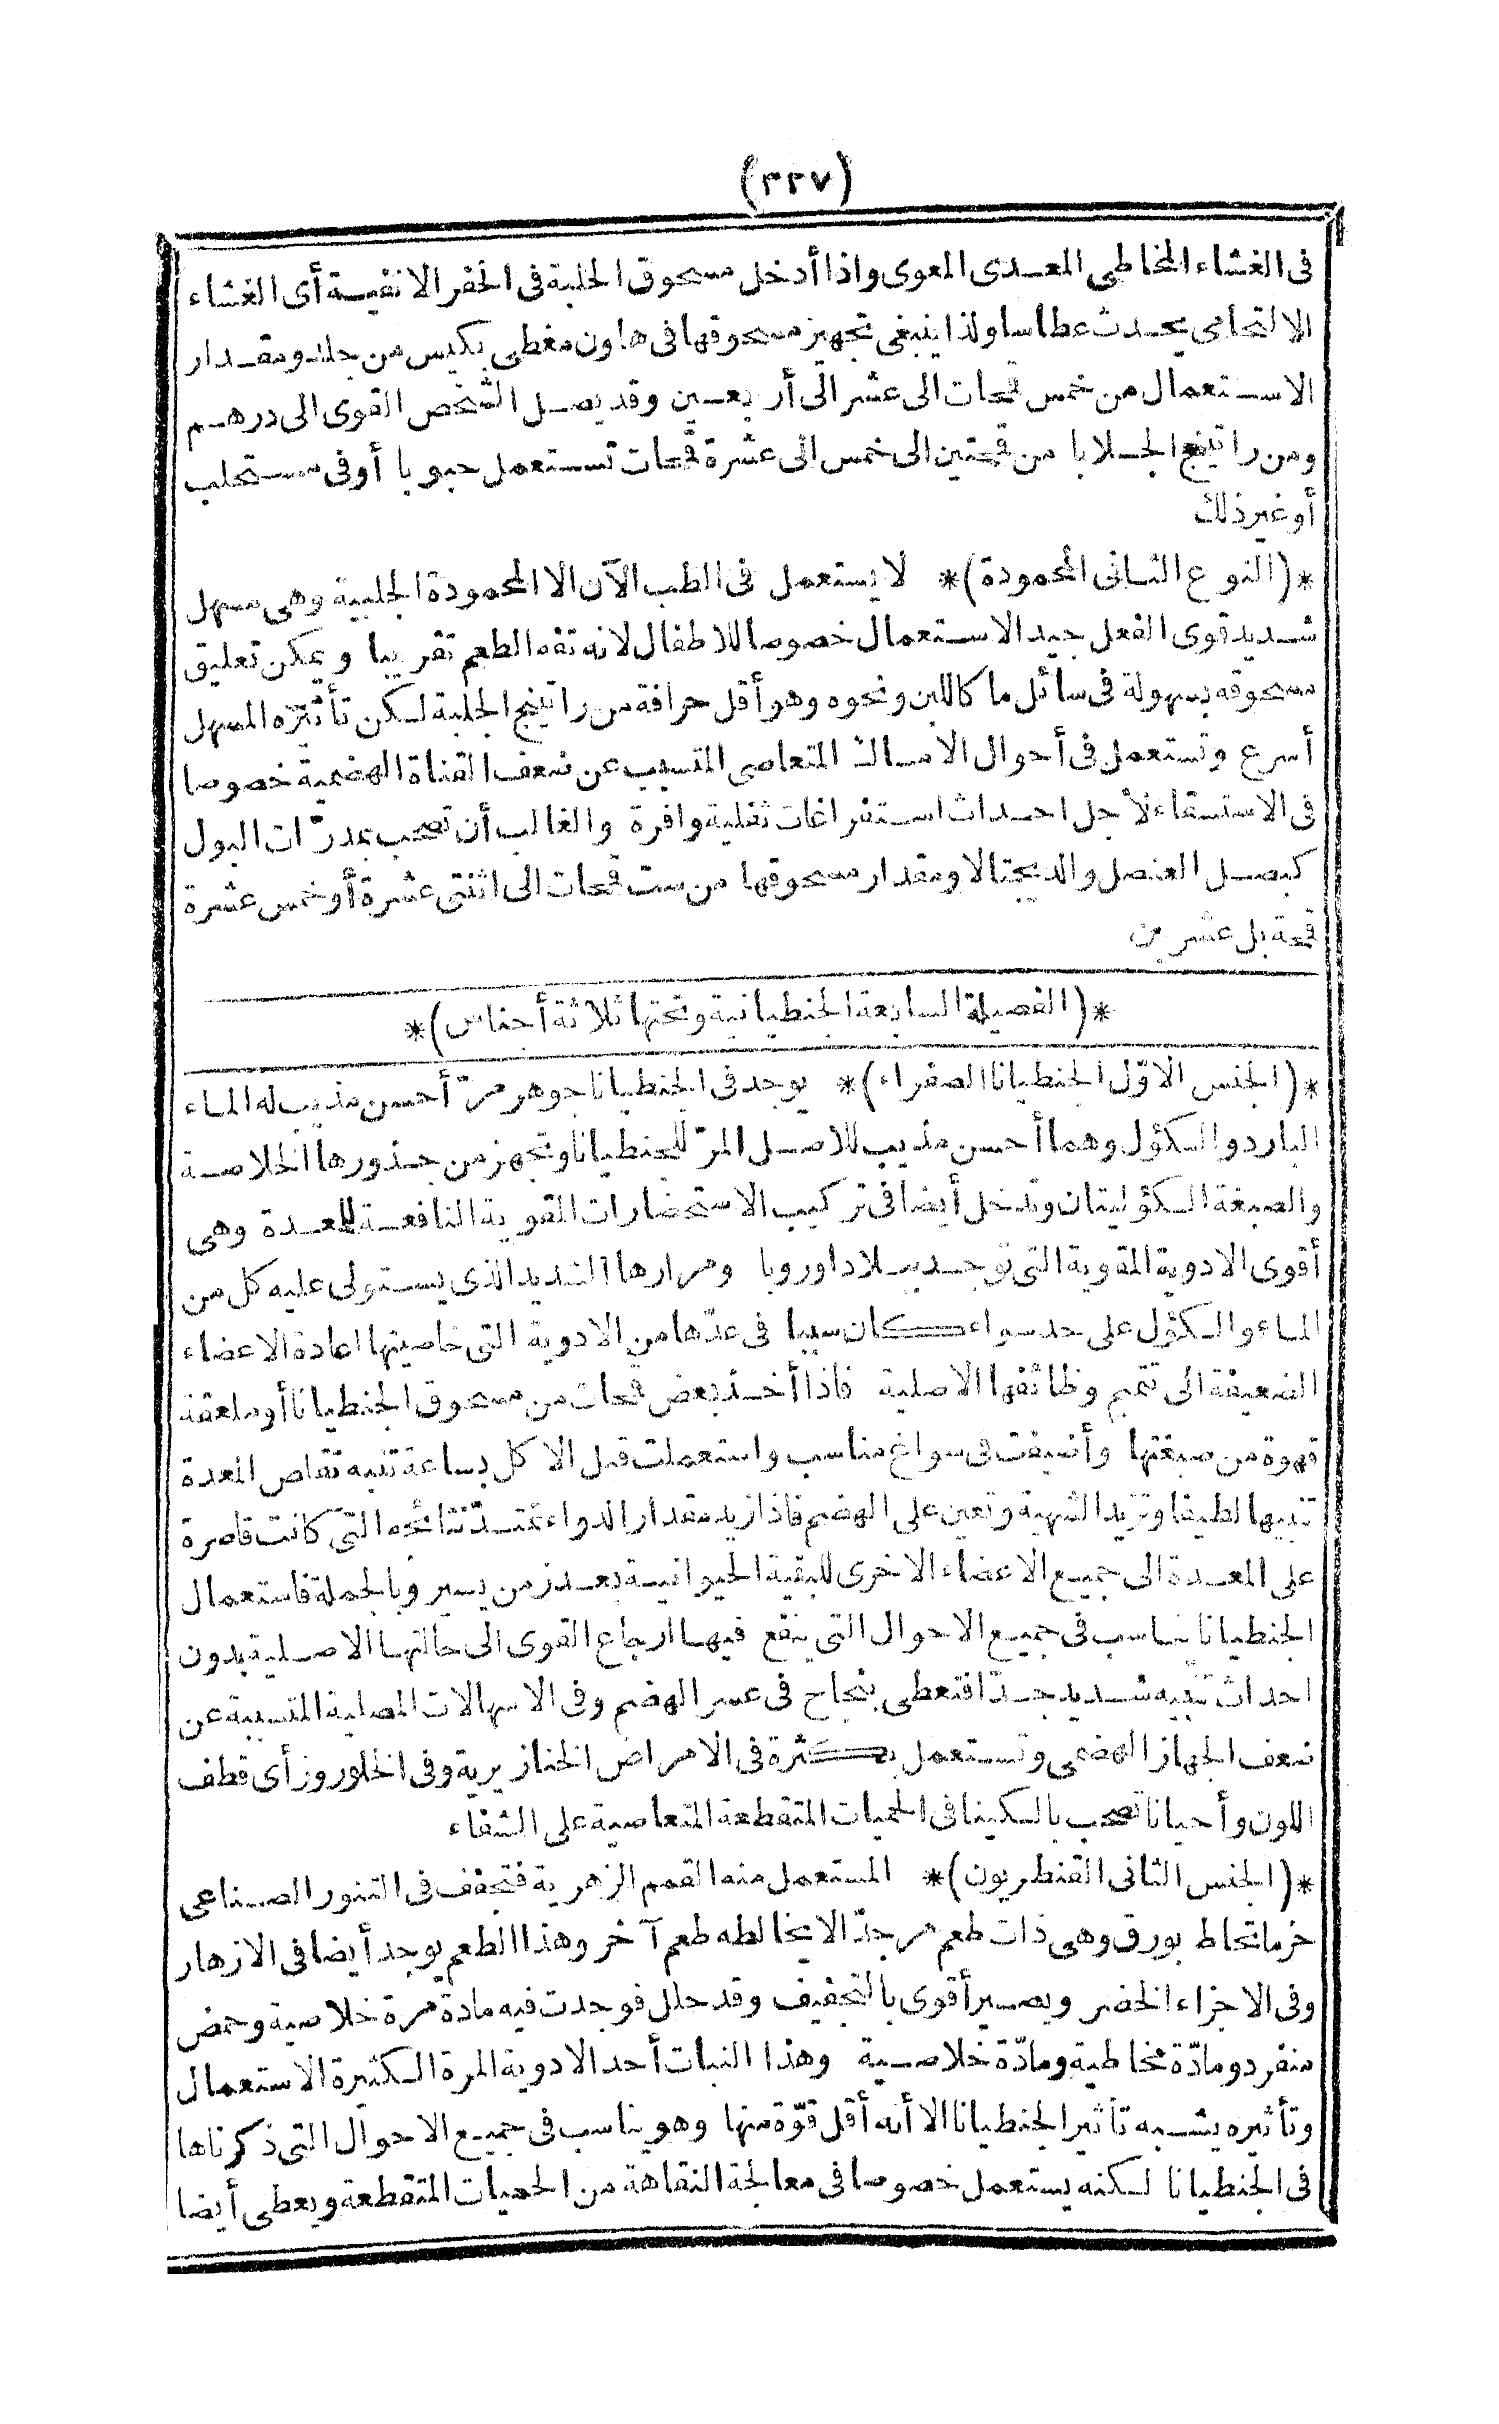 (٣٢٧)
فى الغشاء المخاطى المعدى المعوى واذا أدخل مسحوق الجلبة فى الحفر الانفيسة أى الغشاء
الالتحامى يحدث عطاسا ولذا ينبغى تجهيز مسحوقها فى هاون مغطى بكيس من جلد ومقدار
الاستعمال من خمس قمحات الى عشر الى أربعين وقد يصل الشخص القوى الى درهم
ومن راتينج الجلابا من قمحتين الى خمس الى عشرة قمحات تستعمل حبوبا أوفى مستحلب
أو غير ذلك
*(النوع الثانى المحمودة)* لا يستعمل فى الطب الآن الا المحمودة الحلبية وهى مسهل
شديد قوى الفعل جيد الاستعمال خصوصا للاطفال لانه تفه الطعم تقريبا ويمكن تعليق
مسحوقه بسهولة فى سائل ما كاللبن ونحوه وهو أقل حرافة من راتينج الجلبة لكن تأثيره المسهل
أسرع وتستعمل فى أحوال الامساك المتعاصى المتسبب عن ضعف القناة الهضمية خصوصا
فى الاستسقاء لأجل احداث استفراغات ثفلية وافرة والغالب أن تصحب بمدرّات البول
كبصل العنصل والديجتالا ومقدار مسحوقها من ست قمحات الى اثنتى عشرة أو خمس عشرة
قمحة بل عشرين
*(الفصيلة السابعة الجنطيانية وتحتها ثلاثة أجناس)*
*(الجنس الاوّل الجنطيانا الصفراء)* يوجد فى الجنطيانا جوهر مرّ أحسن مذيب له الماء
البارد والكؤل وهما أحسن مذيب للاصل المرّ للجنطيانا وتجهز من جذورها الخلاصة
والصبغة الكؤليتان وتدخل أيضا فى تركيب الاستحضارات المقوية النافعة للمعدة وهى
أقوى الادوية المقوية التى توجد ببلاد اوروبا ومرارها الشديد الذى يستولى عليه كل من
الماء والكؤل على حد سواء كان سببا فى عدّها من الادوية التى خاصيتها اعادة الاعضاء
الضعيفة الى تتميم وظائفها الاصلية فاذا أخذ بعض قمحات من مسحوق الجنطيانا أو ملعقة
قهوة من صبغتها وأضيفت فى سواغ مناسب واستعملت قبل الاكل بساعة تنبه تقاص المعدة
تنبيها لطيفا وتزيد الشهية وتعين على الهضم فاذا زيد مقدار الدواء تمتدّ نتائجه التى كانت قاصرة
على المعدة الى جميع الاعضاء الاخرى للبقية الحيوانية بعد زمن يسير وبالجملة فاستعمال
الجنطيانا يناسب فى جميع الاحوال التى ينفع فيها ارجاع القوى الى حالتها الاصلية بدون
احداث تنبيه شديد جدّا فتعطى بنجاح فى عسر الهضم وفى الاسهالات المصلية المتسببة عن
ضعف الجهاز الهضمى وتستعمل بكثرة فى الامراض الخنازيرية وفى الخلوروز أى قطف
اللون وأحيانا تصحب بالكينا فى الحميات المتقطعة المتعاصية على الشفاء
*(الجنس الثانى القنطريون)* المستعمل منه القمم الزهرية فتجفف فى التنور الصناعى
خرما تحاط بورق وهى ذات طعم مر جدّا لا يخالطه طعم آخر وهذا الطعم يوجد أيضا فى الازهار
وفى الاجزاء الخضر ويصير أقوى بالتجفيف وقد حلل فوجدت فيه مادة مرة خلاصية وحمض
منفرد ومادّة مخاطية ومادّة خلاصية وهذا النبات أحد الادوية المرة الكثيرة الاستعمال
وتأثيره يشبه تأثير الجنطيانا الا أنه أقل قوّة منها وهو يناسب فى جميع الاحوال التى ذكرناها
فى الجنطيانا لكنه يستعمل خصوصا فى معالجة النقاهة من الحميات المتقطعة ويعطى أيضا